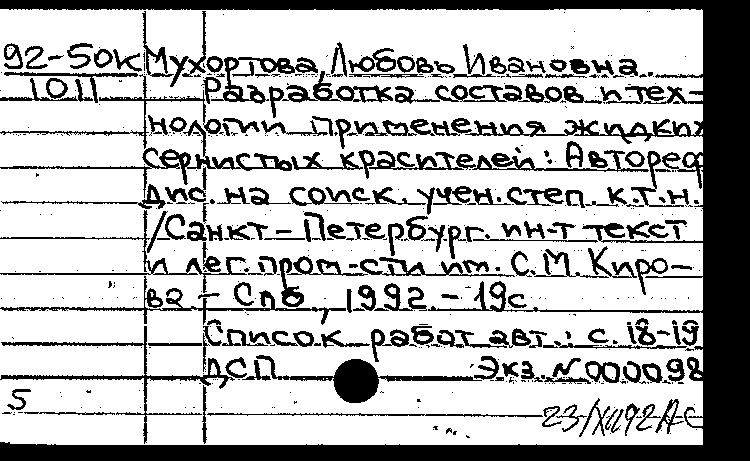 92-50к Мухортова, Любовь Ивановна.
1011 Разработка составов и тех-
нологии применения жидких
сернистых красителей: Автореф
дис. на соиск. учен. степ. к.т.н.
/Санкт-Петербург. ин-т текст
и лег. пром-сти им. С. М. Киро-
ва. - Спб, 1992. - 19с.
Список работ авт.: с. 18-19
ДСП Экз. N 000098
5
23/XII92